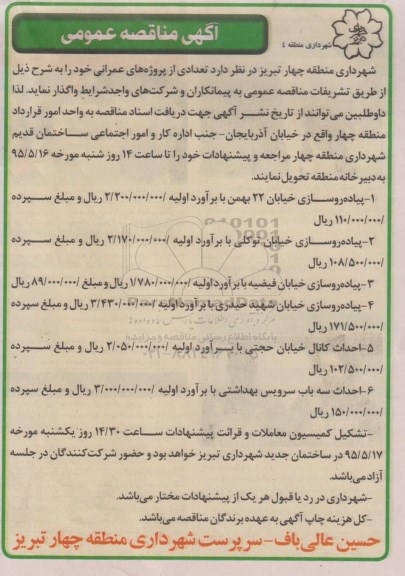 آگهی مناقصه عمومی
شهرداری منطقه ٤
شهرداری منطقه چهار تبریز در نظر دارد تعدادی از پروژه‌های عمرانی خود را به شرح ذیل
از طریق تشریفات مناقصه عمومی به پیمانکاران و شرکت‌های واجدشرایط واگذار نماید. لذا
داوطلبین می‌توانند از تاریخ نشر آگهی جهت دریافت اسناد مناقصه به واحد امور قرارداد
منطقه چهار واقع در خیابان آذربایجان- جنب اداره کار و امور اجتماعی ساختمان قدیم
شهرداری منطقه چهار مراجعه و پیشنهادات خود را تا ساعت ۱۴ روز شنبه مورخه ۹۵/۵/۱۶
به دبیرخانه منطقه تحویل نمایند.
۱-پیاده‌روسازی خیابان ۲۲ بهمن با برآورد اولیه /۲/۲۰۰/۰۰۰/۰۰۰ ریال و مبلغ سپرده
/۱۱۰/۰۰۰/۰۰۰ ریال
۲-پیاده‌روسازی خیابان توکلی با برآورد اولیه /۲/۱۷۰/۰۰۰/۰۰۰ ریال و مبلغ سپرده
/۱۰۸/۵۰۰/۰۰۰ ریال
۳-پیاده‌روسازی خیابان فیضیه با برآورد اولیه /۱/۷۸۰/۰۰۰/۰۰۰ ریال و مبلغ /۸۹/۰۰۰/۰۰۰ ریال
۴-پیاده‌روسازی خیابان شهید حیدری با برآورد اولیه /۳/۴۳۰/۰۰۰/۰۰۰ ریال و مبلغ سپرده
/۱۷۱/۵۰۰/۰۰۰ ریال
۵-احداث کانال خیابان حجتی با برآورد اولیه /۲/۰۵۰/۰۰۰/۰۰۰ ریال و مبلغ سپرده
/۱۰۲/۵۰۰/۰۰۰ ریال
۶-احداث سه باب سرویس بهداشتی با برآورد اولیه /۳/۰۰۰/۰۰۰/۰۰۰ ریال و مبلغ سپرده
/۱۵۰/۰۰۰/۰۰۰ ریال
-تشکیل کمیسیون معاملات و قرائت پیشنهادات ساعت ۱۴/۳۰ روز یکشنبه مورخه
۹۵/۵/۱۷ در ساختمان جدید شهرداری تبریز خواهد بود و حضور شرکت‌کنندگان در جلسه
آزاد می‌باشد.
-شهرداری در رد یا قبول هر یک از پیشنهادات مختار می‌باشد.
-کل هزینه چاپ آگهی به عهده برندگان مناقصه می‌باشد.
حسین عالی‌باف-سرپرست شهرداری منطقه چهار تبریز